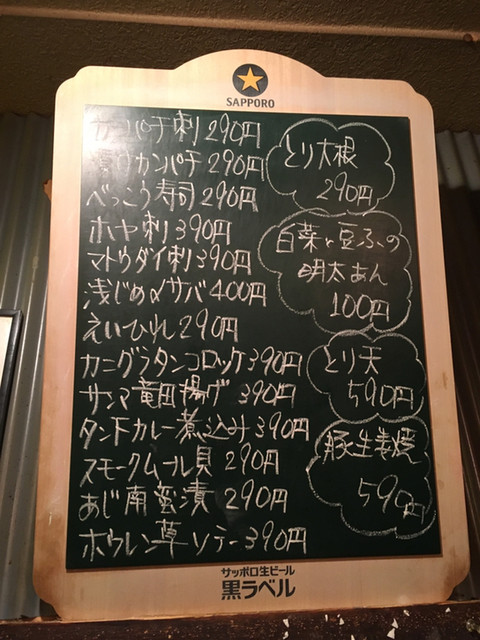 SAPPORO
カンパチ刺 290円
漬けカンパチ 290円
べっこう寿司 290円
ホヤ刺 390円
マトウダイ刺 390円
浅じめ〆サバ 400円
えいひれ 290円
カニグラタンコロッケ 390円
サンマ竜田揚げ 390円
タンドカレー煮込み 390円
スモークムール貝 290円
あじ南蛮漬 290円
ホウレン草ソテー 390円
とり大根
290円
白菜と豆ふの
明太あん
100円
とり天
590円
豚生姜焼
590円
サッポロ生ビール
黒ラベル